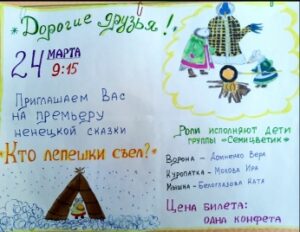 Дорогие друзья!
24 МАРТА
9:15
Приглашаем Вас
на премьеру
ненецкой сказки
"Кто лепешки съел?"
Роли исполняют дети
группы «Семицветик»
Ворона – Домненко Вера
Куропатка – Мохова Ира
Мышка – Белоглазова Ката
Цена билета:
одна конфета